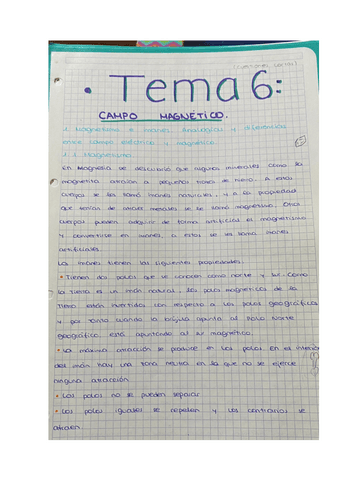 • Tema 6:
CAMPO MAGNÉTICO.
1. Magnetismo e imanes. Analogías y diferencias
entre campo eléctrico y magnético
1.1. Magnetismo
En Magnesia se descubrió que algunos minerales como la
magnetita atraían a pequeños trozos de hierro. A estos
cuerpos se les llamó imanes naturales, y a la propiedad
que tenían de atraer metales se le llamó magnetismo. Otros
cuerpos pueden adquirir de forma artificial el magnetismo
y convertirse en imanes, a estos se les llama imanes
artificiales.
Los imanes tienen las siguientes propiedades:
• Tienen dos polos que se conocen como norte y sur. Como
la Tierra es un imán natural, los polos magnéticos de la
Tierra están invertidos con respecto a los polos geográficos
y por tanto cuando la brújula apunta al Polo Norte
geográfico está apuntando al sur magnético.
• La máxima atracción se produce en los polos. En el interior
del imán hay una zona neutra en la que no se ejerce
ninguna atracción.
• Los polos no se pueden separar
• Los polos iguales se repelen y los contrarios se
atraen.